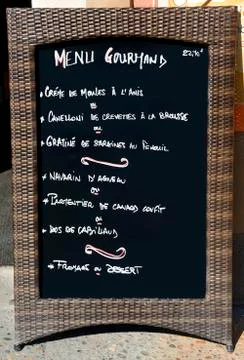 MENU GOURMAND
* CRÈME DE MOULES À L'ANIS
OU
* CANELLONI DE CREVETTES À LA BROUSSE
OU
* GRATINÉ DE SARDINES AU FENOUIL
* NAVARIN D'AGNEAU
OU
* PARMENTIER DE CANARD CONFIT
OU
* DOS DE CABILLAUD
* FROMAGE OU DESSERT